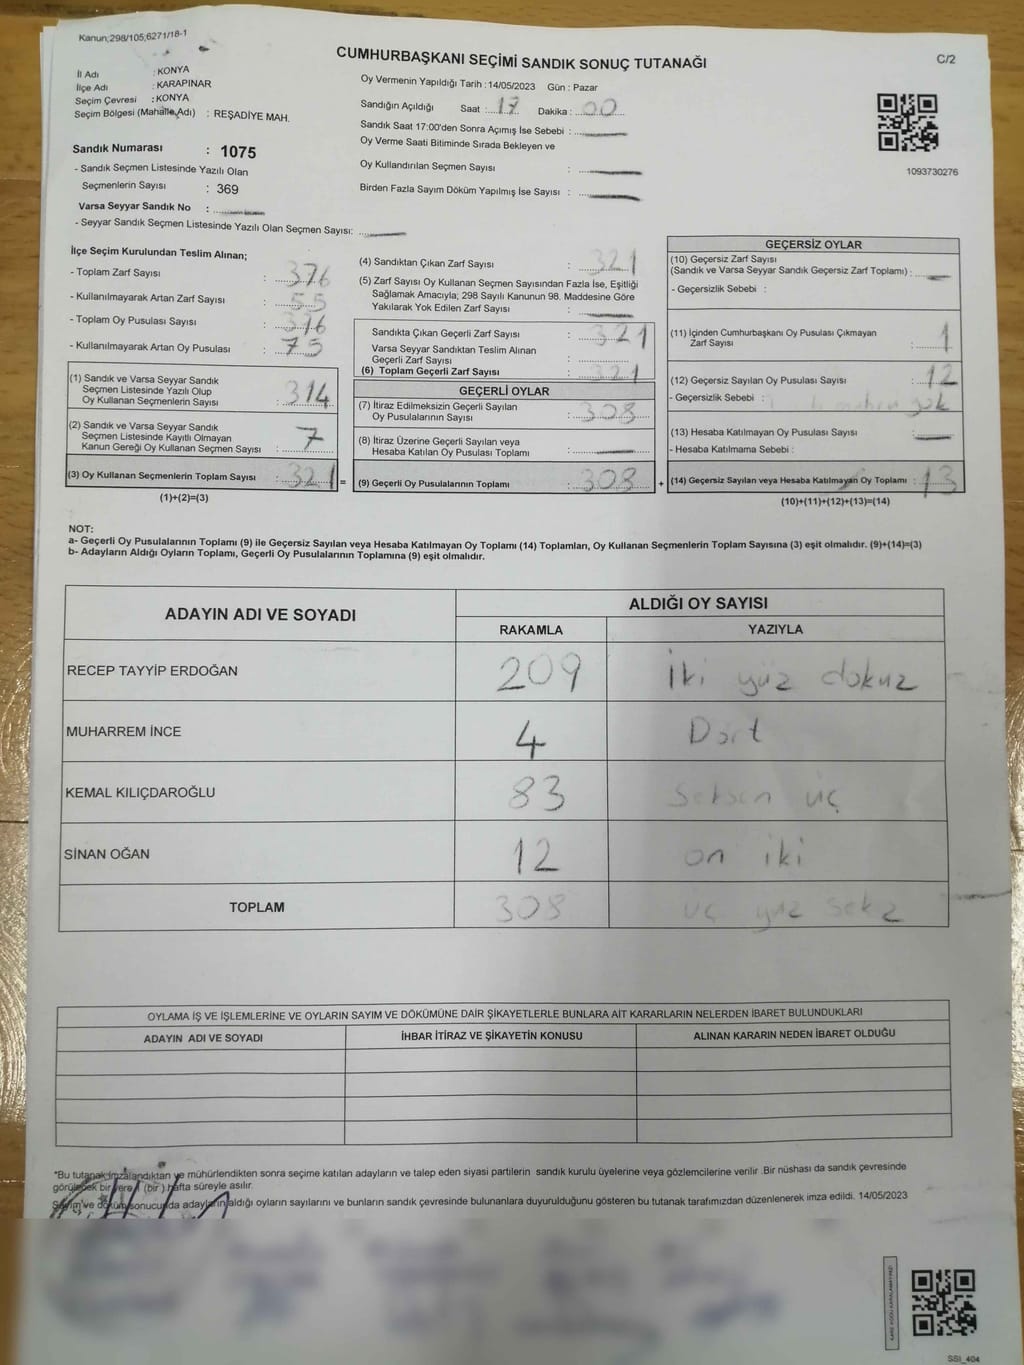 Kanun;298/105;6271/18-1
CUMHURBAŞKANI SEÇİMİ SANDIK SONUÇ TUTANAĞI
C/2
İl Adı : KONYA
İlçe Adı : KARAPINAR
Seçim Çevresi : KONYA
Seçim Bölgesi (Mahalle Adı) : REŞADİYE MAH.
Sandık Numarası : 1075
- Sandık Seçmen Listesinde Yazılı Olan
Seçmenlerin Sayısı : 369
Varsa Seyyar Sandık No :
- Seyyar Sandık Seçmen Listesinde Yazılı Olan Seçmen Sayısı:
Oy Vermenin Yapıldığı Tarih : 14/05/2023 Gün : Pazar
Sandığın Açıldığı Saat : 17 Dakika : 00
Sandık Saat 17:00'den Sonra Açımış İse Sebebi :
Oy Verme Saati Bitiminde Sırada Bekleyen ve
Oy Kullandırılan Seçmen Sayısı :
Birden Fazla Sayım Döküm Yapılmış İse Sayısı :
1093730276
İlçe Seçim Kurulundan Teslim Alınan;
- Toplam Zarf Sayısı : 376
- Kullanılmayarak Artan Zarf Sayısı : 55
- Toplam Oy Pusulası Sayısı : 376
- Kullanılmayarak Artan Oy Pusulası : 75
(1) Sandık ve Varsa Seyyar Sandık
Seçmen Listesinde Yazılı Olup
Oy Kullanan Seçmenlerin Sayısı : 314
(2) Sandık ve Varsa Seyyar Sandık
Seçmen Listesinde Kayıtlı Olmayan
Kanun Gereği Oy Kullanan Seçmen Sayısı : 7
(3) Oy Kullanan Seçmenlerin Toplam Sayısı : 321 =
(1)+(2)=(3)
(4) Sandıktan Çıkan Zarf Sayısı : 321
(5) Zarf Sayısı Oy Kullanan Seçmen Sayısından Fazla İse, Eşitliği
Sağlamak Amacıyla; 298 Sayılı Kanunun 98. Maddesine Göre
Yakılarak Yok Edilen Zarf Sayısı :
Sandıkta Çıkan Geçerli Zarf Sayısı : 321
Varsa Seyyar Sandıktan Teslim Alınan
Geçerli Zarf Sayısı :
(6) Toplam Geçerli Zarf Sayısı : 321
GEÇERLİ OYLAR
(7) İtiraz Edilmeksizin Geçerli Sayılan
Oy Pusulalarının Sayısı : 308
(8) İtiraz Üzerine Geçerli Sayılan veya
Hesaba Katılan Oy Pusulası Toplamı :
(9) Geçerli Oy Pusulalarının Toplamı : 308 +
GEÇERSİZ OYLAR
(10) Geçersiz Zarf Sayısı
(Sandık ve Varsa Seyyar Sandık Geçersiz Zarf Toplamı) :
- Geçersizlik Sebebi :
(11) İçinden Cumhurbaşkanı Oy Pusulası Çıkmayan
Zarf Sayısı : 1
(12) Geçersiz Sayılan Oy Pusulası Sayısı : 12
- Geçersizlik Sebebi :
(13) Hesaba Katılmayan Oy Pusulası Sayısı :
- Hesaba Katılmama Sebebi :
(14) Geçersiz Sayılan veya Hesaba Katılmayan Oy Toplamı : 13
(10)+(11)+(12)+(13)=(14)
NOT:
a- Geçerli Oy Pusulalarının Toplamı (9) ile Geçersiz Sayılan veya Hesaba Katılmayan Oy Toplamı (14) Toplamları, Oy Kullanan Seçmenlerin Toplam Sayısına (3) eşit olmalıdır. (9)+(14)=(3)
b- Adayların Aldığı Oyların Toplamı, Geçerli Oy Pusulalarının Toplamına (9) eşit olmalıdır.
ADAYIN ADI VE SOYADI
ALDIĞI OY SAYISI
RAKAMLA YAZIYLA
RECEP TAYYİP ERDOĞAN 209 iki yüz dokuz
MUHARREM İNCE 4 Dört
KEMAL KILIÇDAROĞLU 83 Seksen üç
SİNAN OĞAN 12 on iki
TOPLAM 308 üç yüz sekz
OYLAMA İŞ VE İŞLEMLERİNE VE OYLARIN SAYIM VE DÖKÜMÜNE DAİR ŞİKAYETLERLE BUNLARA AİT KARARLARIN NELERDEN İBARET BULUNDUKLARI
ADAYIN ADI VE SOYADI İHBAR İTİRAZ VE ŞİKAYETİN KONUSU ALINAN KARARIN NEDEN İBARET OLDUĞU
*Bu tutanak imzalandıktan ve mühürlendikten sonra seçime katılan adayların ve talep eden siyasi partilerin sandık kurulu üyelerine veya gözlemcilerine verilir .Bir nüshası da sandık çevresinde
görülecek bir yere 1 (bir ) hafta süreyle asılır.
Sayım ve döküm sonucunda adayların aldığı oyların sayılarını ve bunların sandık çevresinde bulunanlara duyurulduğunu gösteren bu tutanak tarafımızdan düzenlenerek imza edildi. 14/05/2023
SSI_404